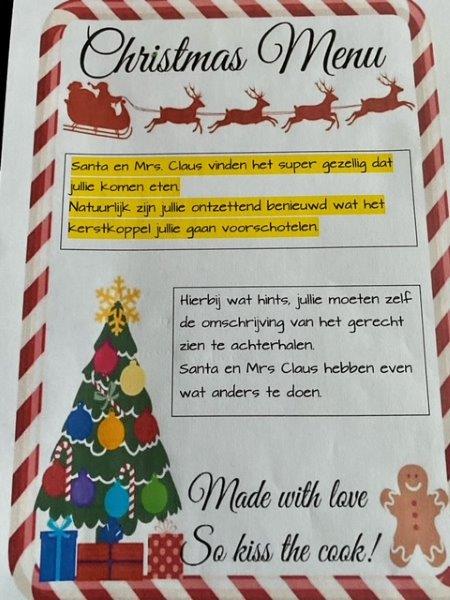 Christmas Menu
Santa en Mrs. Claus vinden het super gezellig dat
jullie komen eten.
Natuurlijk zijn jullie ontzettend benieuwd wat het
kerstkoppel jullie gaan voorschotelen.
Hierbij wat hints, jullie moeten zelf
de omschrijving van het gerecht
zien te achterhalen.
Santa en Mrs Claus hebben even
wat anders te doen.
Made with love
So kiss the cook!